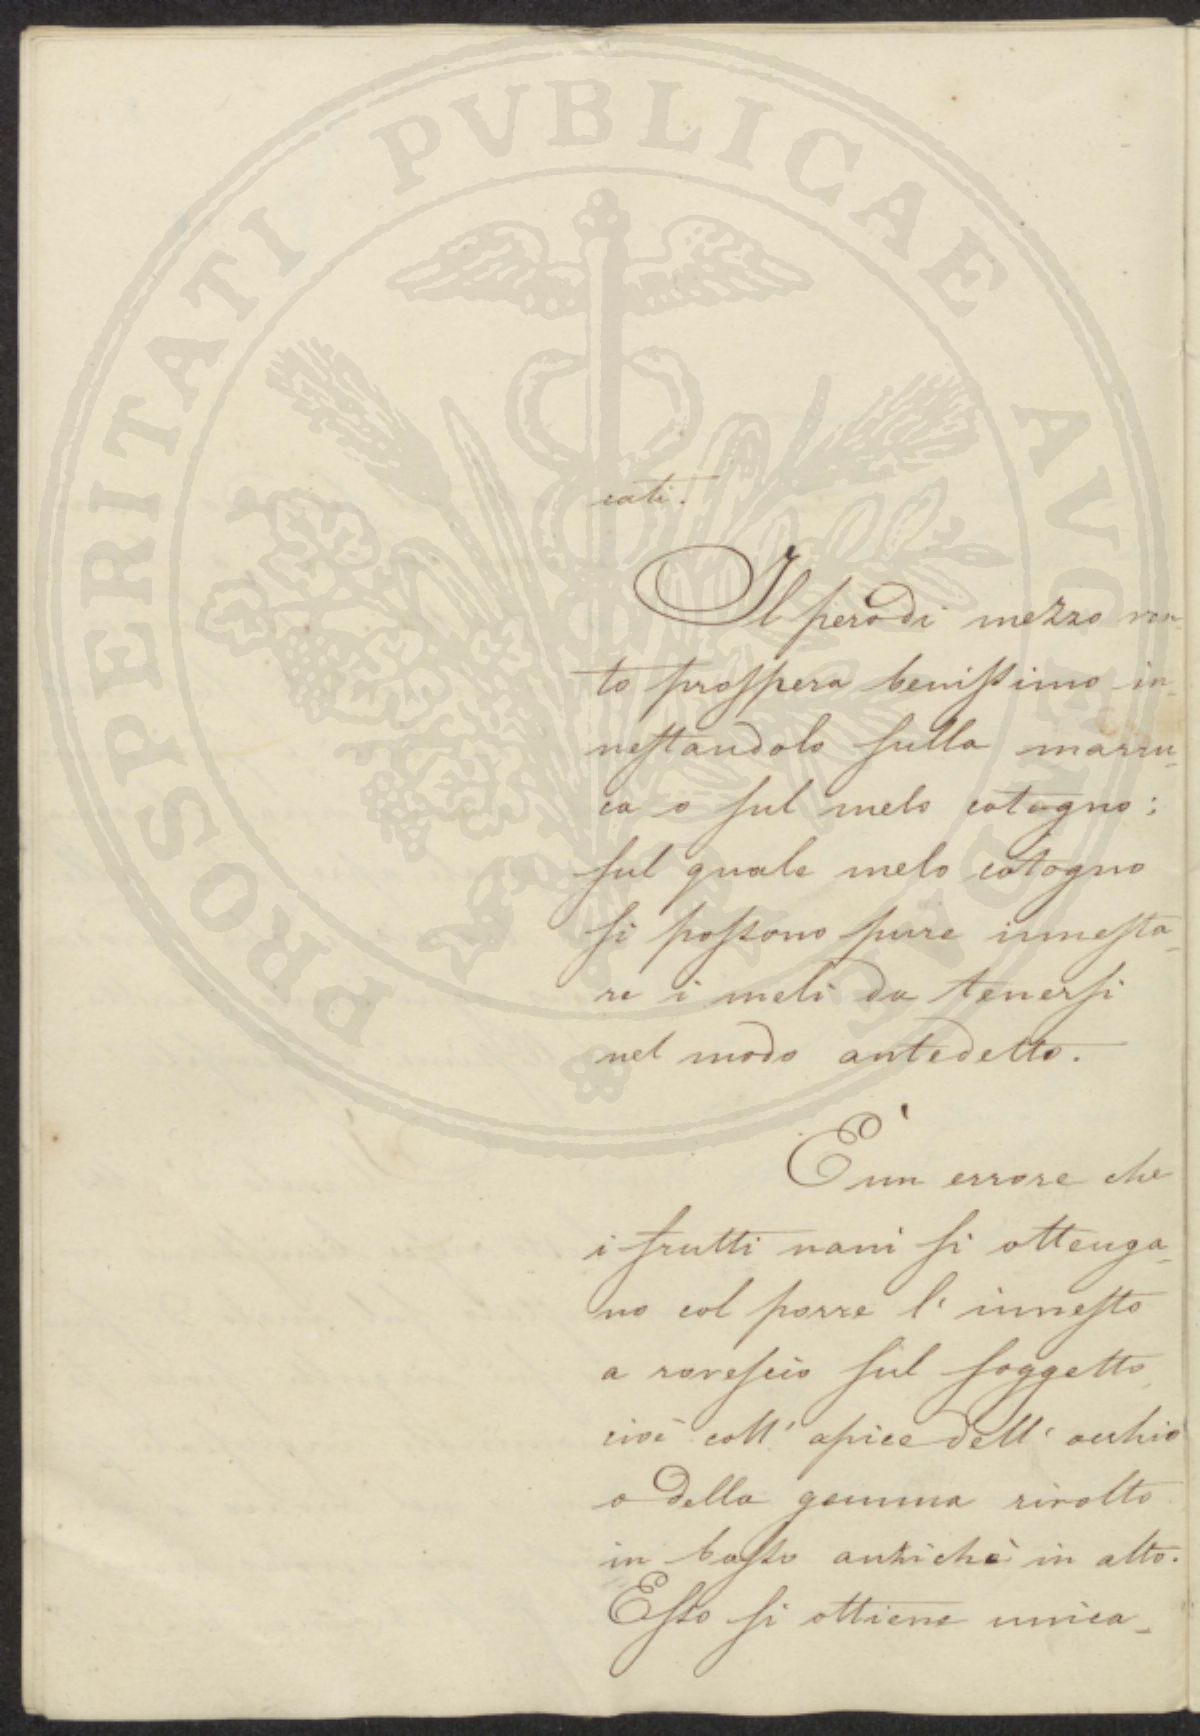 PROSPERITATI PVBLICAE AVGENDAE
cati.
Il pero di mezzo ven-
to prospera benissimo in-
nestandolo sulla marru-
ca o sul melo cotogno;
sul quale melo cotogno
si possono pure innesta-
re i meli da tenersi
nel modo antedetto.
È un errore che
i frutti nani si ottenga-
no col porre l'innesto
a rovescio sul soggetto,
cioè coll'apice dell'occhio
o della gemma rivolto
in basso anzichè in alto.
Esso si ottiene unica-